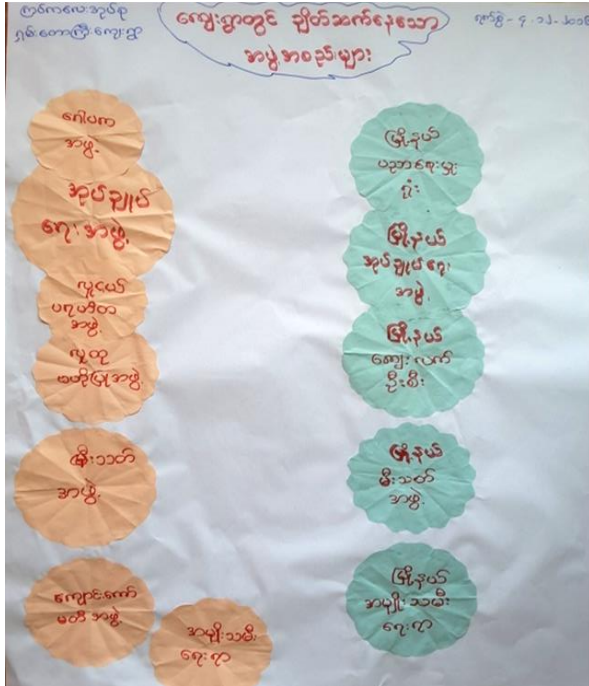 ကြပ်ကလေးအုပ်စု
ရှမ်းတောကြီးကျေးရွာ
ကျေးရွာတွင် ချိတ်ဆက်နေသော
အဖွဲ့အစည်းများ
ရက်စွဲ - ၄.၁၂.၂၀၁၆
ဂေါပက
အဖွဲ့
အုပ်ချုပ်
ရေးအဖွဲ့
လူငယ်
ပရဟိတ
အဖွဲ့
လူထု
ဗဟိုပြုအဖွဲ့
မီးသတ်
အဖွဲ့
ကျောင်းကော်
မတီ အဖွဲ့
အမျိုးသမီး
ရေးရာ
မြို့နယ်
ပညာရေးမှူး
ရုံး
မြို့နယ်
အုပ်ချုပ်ရေး
အဖွဲ့
မြို့နယ်
ကျေးလက်
ဦးစီး
မြို့နယ်
မီးသတ်
အဖွဲ့
မြို့နယ်
အမျိုးသမီး
ရေးရာ